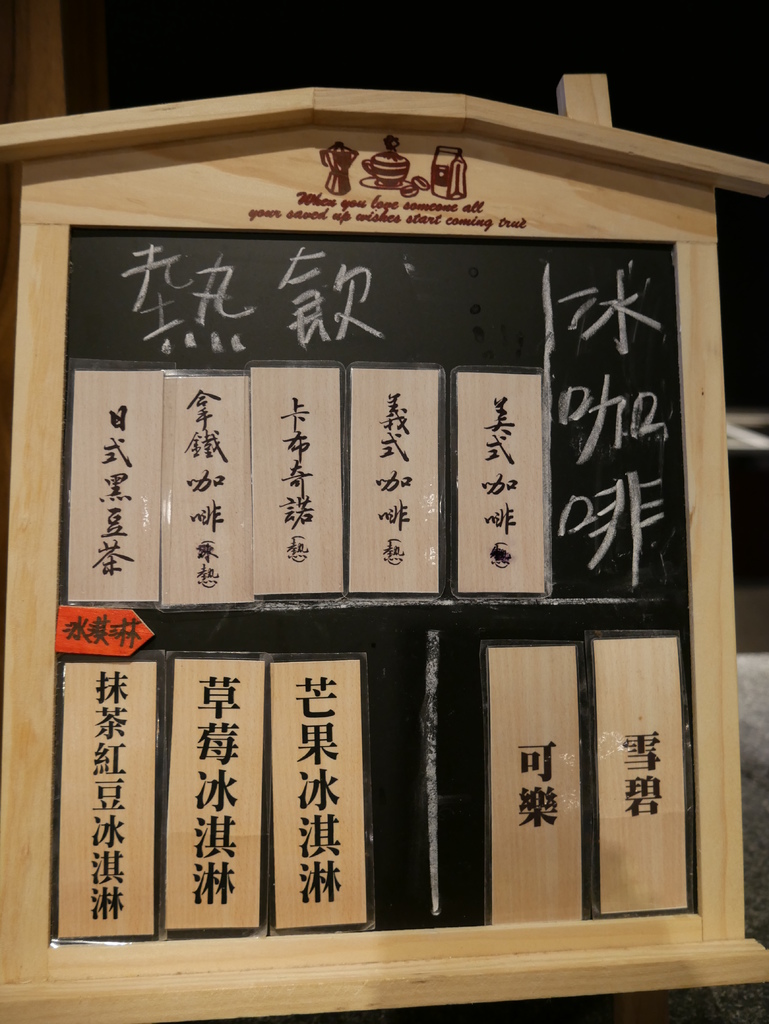 When you love someone all
your saved up wishes start coming true
熱飲
冰咖啡
美式咖啡(熱)
義式咖啡(熱)
卡布奇諾(熱)
拿鐵咖啡(冰熱)
日式黑豆茶
冰淇淋
雪碧
可樂
芒果冰淇淋
草莓冰淇淋
抹茶紅豆冰淇淋